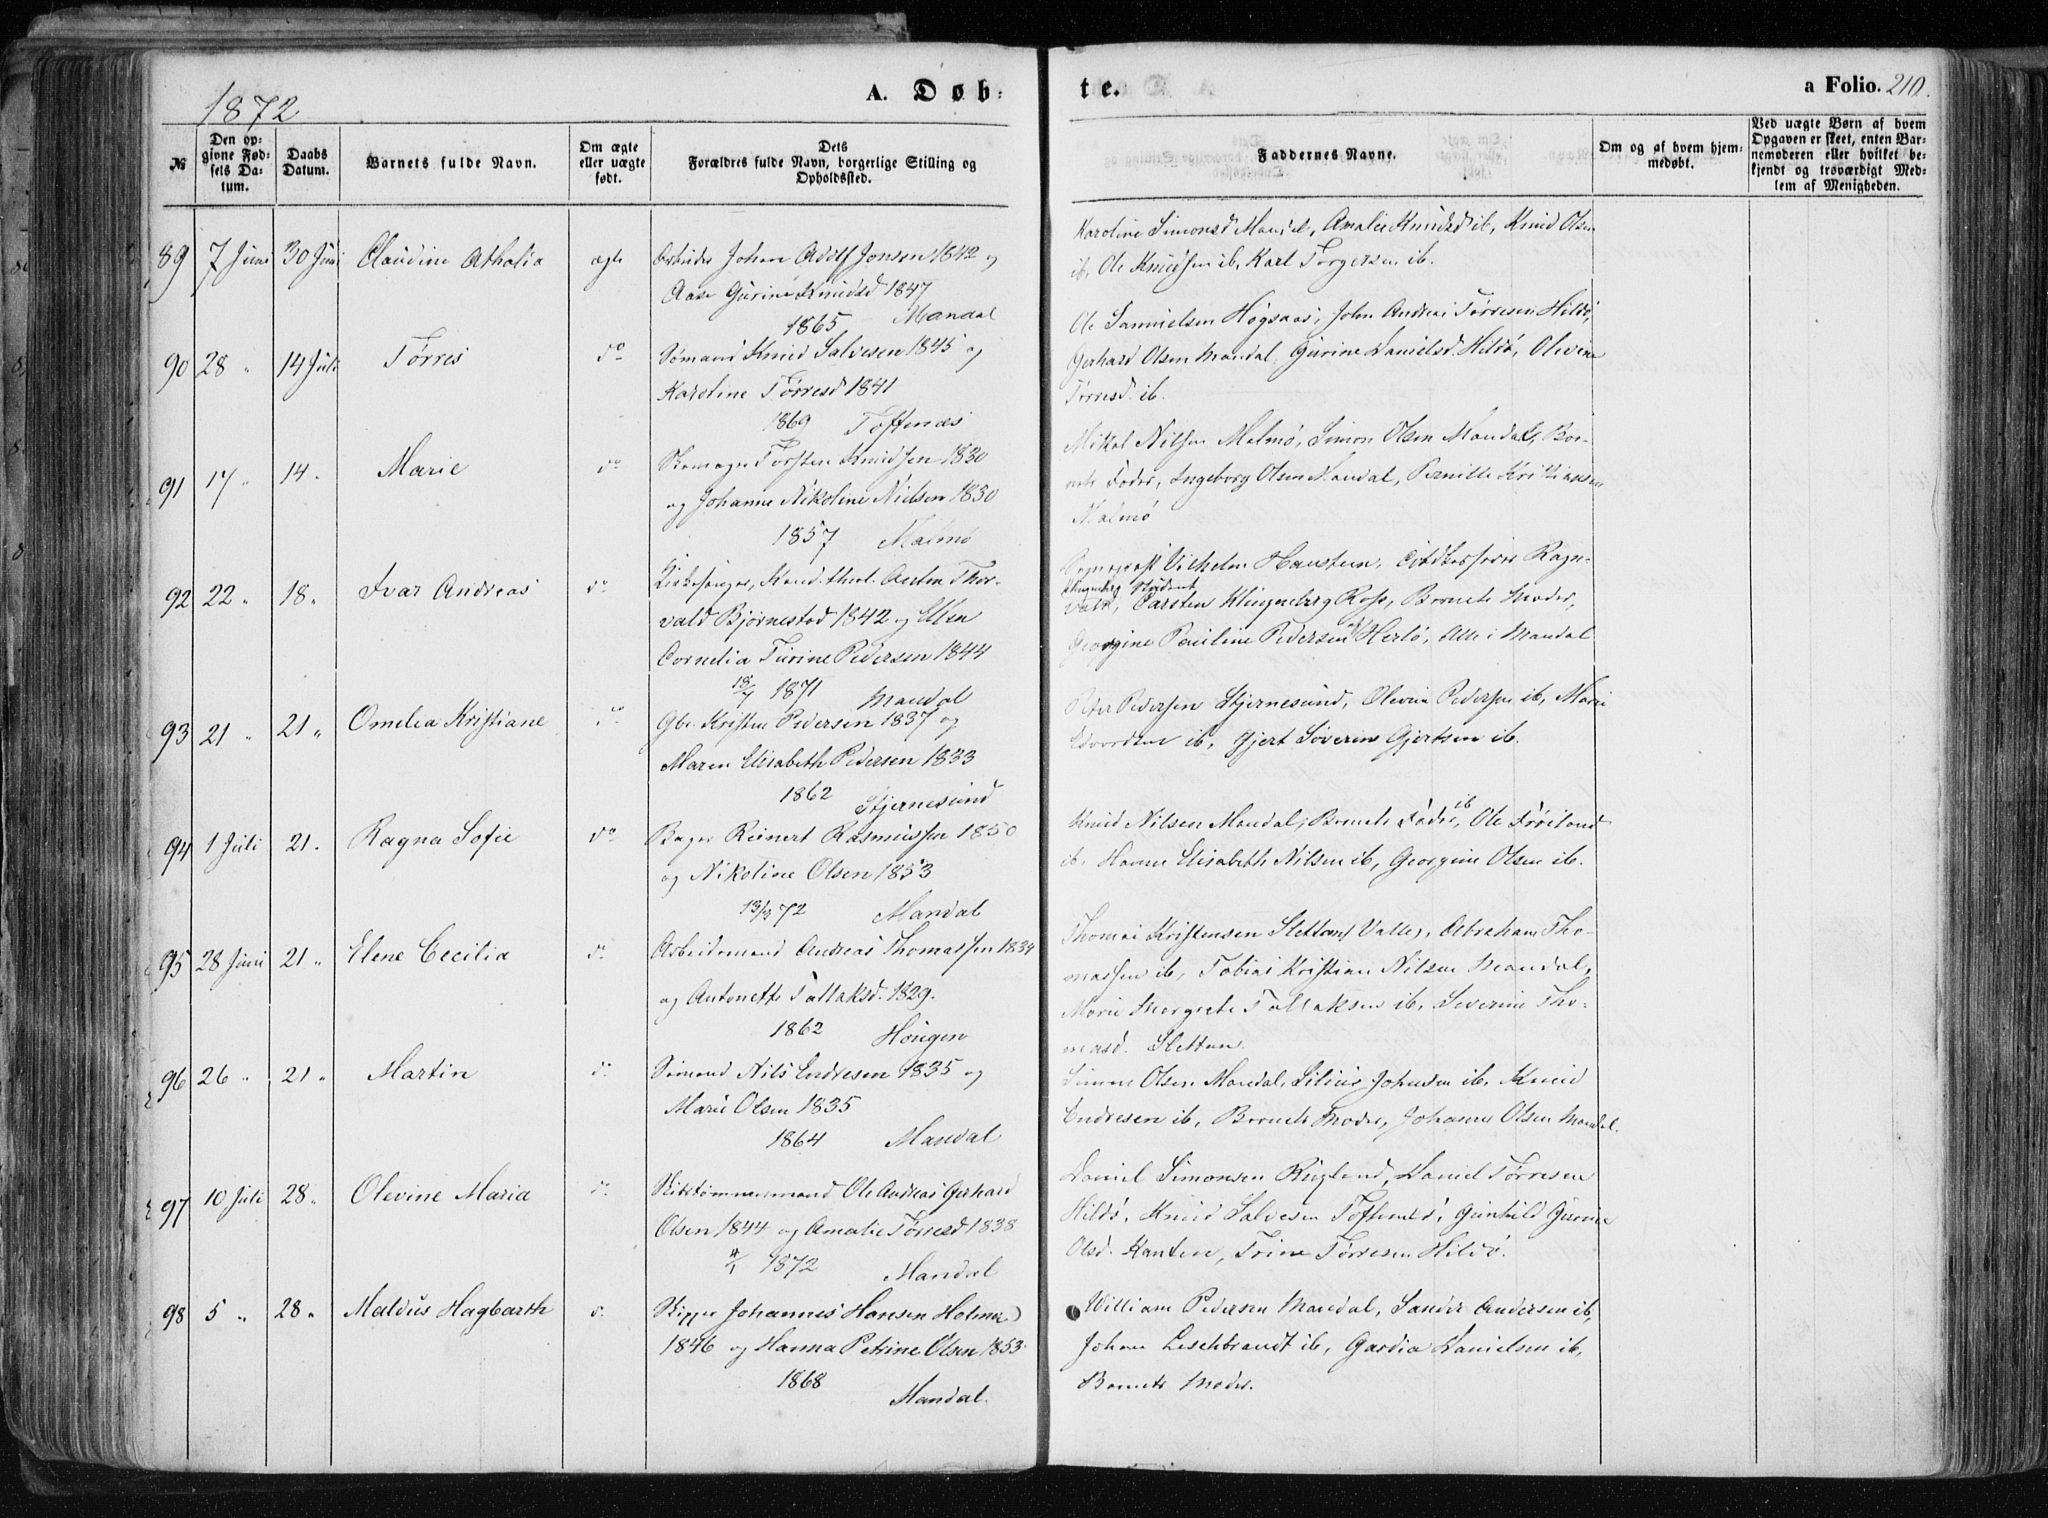 1872
A. Døb-
te.
a Folio. 210.
№
Den op-
givne Fød-
sels Da-
tum.
Daabs
Datum.
Barnets fulde Navn.
Om ægte
eller uægte
født.
Dets
Forældres fulde Navn, borgerlige Stilling og
Opholdssted.
Faddernes Navne.
Om og af hvem hjem-
medøbt.
Ved uægte Børn af hvem
Opgaven er skeet, enten Bar-
nemoderen eller hvilket be-
kjendt og troværdigt Med-
lem af Menigheden.
89 7 Juni 30 Juni Claudine Athalia ægte Arbeider Johan Adolf Jonsen 1842 og
Aase Gurine Knudsd 1847
1865 Mandal
Karoline Simonsd Mandal, Amalie Knudsd ib, Knud Olsen
ib, Ole Knudsen ib, Karl Torgersen ib.
90 28 " 14 Juli Tørres do Sømand Knud Salvesen 1845 og
Karoline Tørresd 1841
1869 Toftenæs
Ole Samuelsen Høgsaas, John Andreas Tørresen Hildø,
Gerhard Olsen Mandal, Gurine Danielsd. Hildø, Olevine
Tørresd. ib.
91 17 " 14 " Marie do Skomager Torsten Knudsen 1830
og Johanne Nikoline Nielsen 1830
1857 Malmø
Mikkel Nilsen Malmø, Simon Olsen Mandal, Bar-
nets Fader, Ingeborg Olsen Mandal, Pernille Kristiansen
Malmø
92 22 " 18 " Ivar Andreas do Kirkesanger, Kand. theol. Anton Thor-
vald Bjørnestad 1842 og Ellen
Cornelia Turine Pedersen 1844
18/7 1871 Mandal
Vilhelm Hanstein, Ragn-
Klingenberg Student
vald, Carsten Klingenberg Ross, Barnets Moder,
Georgine Pauline Pedersen Herlø, Alle i Mandal
93 21 " 21 " Omelia Kristiane do Gbr. Kristen Pedersen 1837 og
Maren Elisabeth Pedersen 1833
1862 Stjernesund
Peter Pedersen Stjernesund, Olevine Pedersen ib, Marie
Edvardsen ib, Gjert Søverin Gjertsen ib.
94 1 Juli 21 " Ragna Sofie do Bager Reinert Rasmussen 1850
og Nikoline Olsen 1853
13/3 72 Mandal
Knud Nilsen Mandal, Barnets Fader ib, Ole Frøiland
ib, Hanne Elisabeth Nilsen ib, Georgine Olsen ib.
95 28 Juni 21 " Elene Cecilia do Arbeidsmand Andreas Thomassen 1834
og Antonette Tallaksd. 1829.
1862 Hougen
Thomas Kristensen Sletten Valle, Abraham Tho-
massen ib, Tobias Kristian Nilsen Mandal,
Marie Margrete Tallaksen ib, Severine Tho-
masd. Sletten.
96 26 " 21 " Martin do Sømand Nils Endresen 1835 og
Marie Olsen 1835
1864 Mandal
Simon Olsen Mandal, Silius Johnsen ib, Knud
Endresen ib, Barnets Moder, Johanne Olsen Mandal.
97 10 Juli 28 " Olevine Maria do Skibstømmermand Ole Andreas Gerhard
Olsen 1844 og Amalie Tørresd 1838
4/1 1872 Mandal
Daniel Simonsen Ruglund, Daniel Tørresen
Hildø, Knud Salvesen Toftenæs, Gunhild Gurine
Olsd. Kanten, Trine Tørresen Hildø.
98 5 " 28 " Maldus Hagbarth do Skipper Johannes Hansen Holmer
1846 og Hanna Petrine Olsen 1853
1868 Mandal.
William Pedersen Mandal, Sander Andersen ib,
Johan Leschbrandt ib, Gardia Danielsen ib,
Barnets Moder.